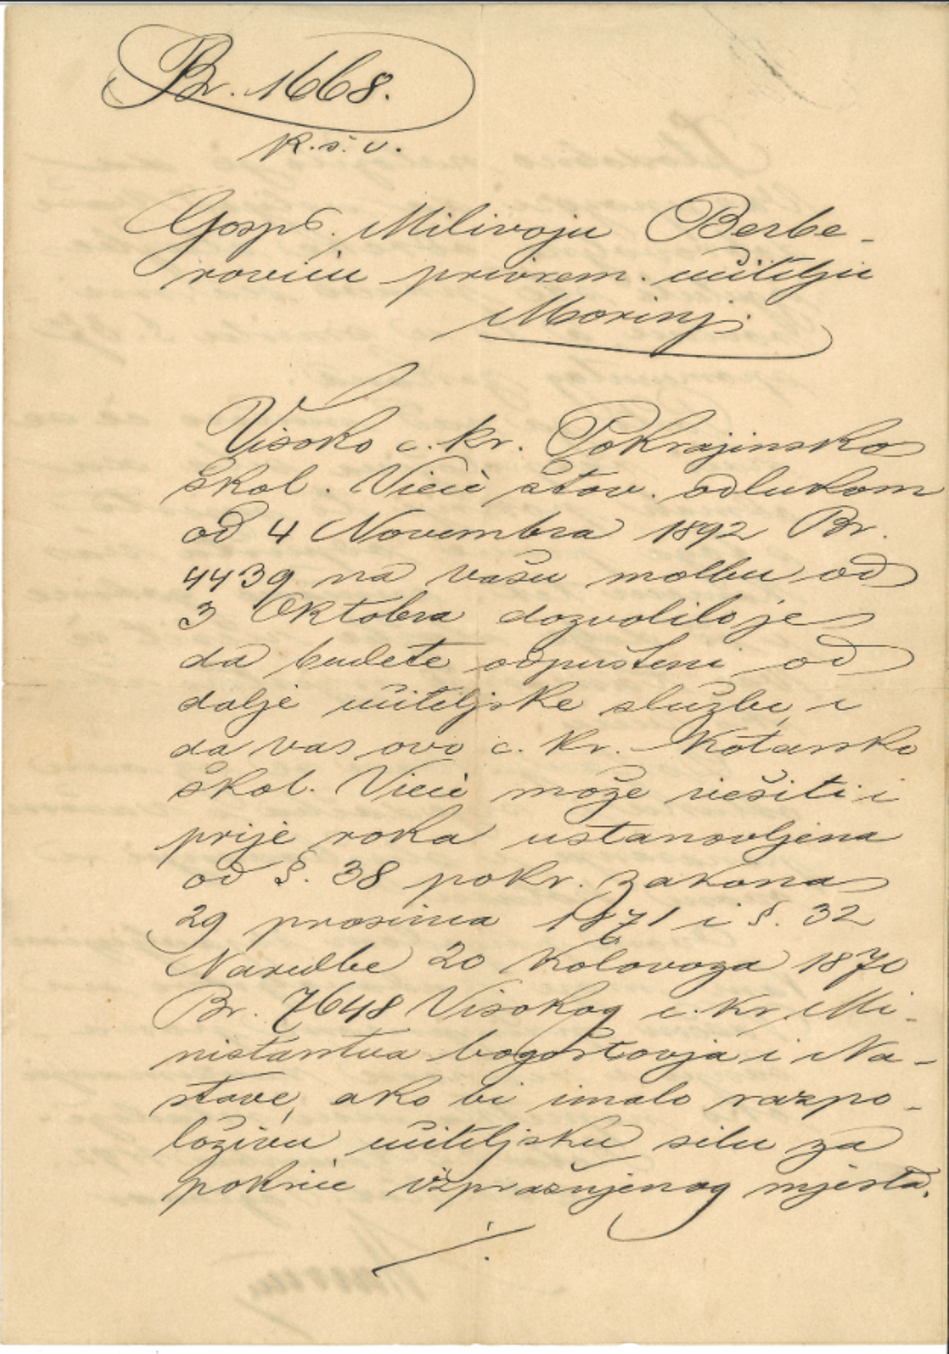 Br. 1668.
K.š.v.
Gosp. Milivoju Berbe-
roviću privrem. učitelju
Morinj.
Visoko c. kr. Pokrajinsko
škol. Vieće štov. odlukom
od 4 Novembra 1892 Br.
4439 na vašu molbu od
3 Oktobra dozvolilo je
da budete odpušteni od
dalje učiteljske službe, i
da vas ovo c. kr. Kotarsko
škol. Vieće može riešiti i
prije roka ustanovljena
od §. 38 pokr. zakona
29 prosinca 1871 i §. 32
Naredbe 20 Kolovoza 1870
Br. 7648 Visokog c. kr. Mi-
nistarstva bogoštovja i Na-
stave, ako bi imalo razpo-
loživu učiteljsku silu za
pokriće izpražnjenog mjesta.
./.